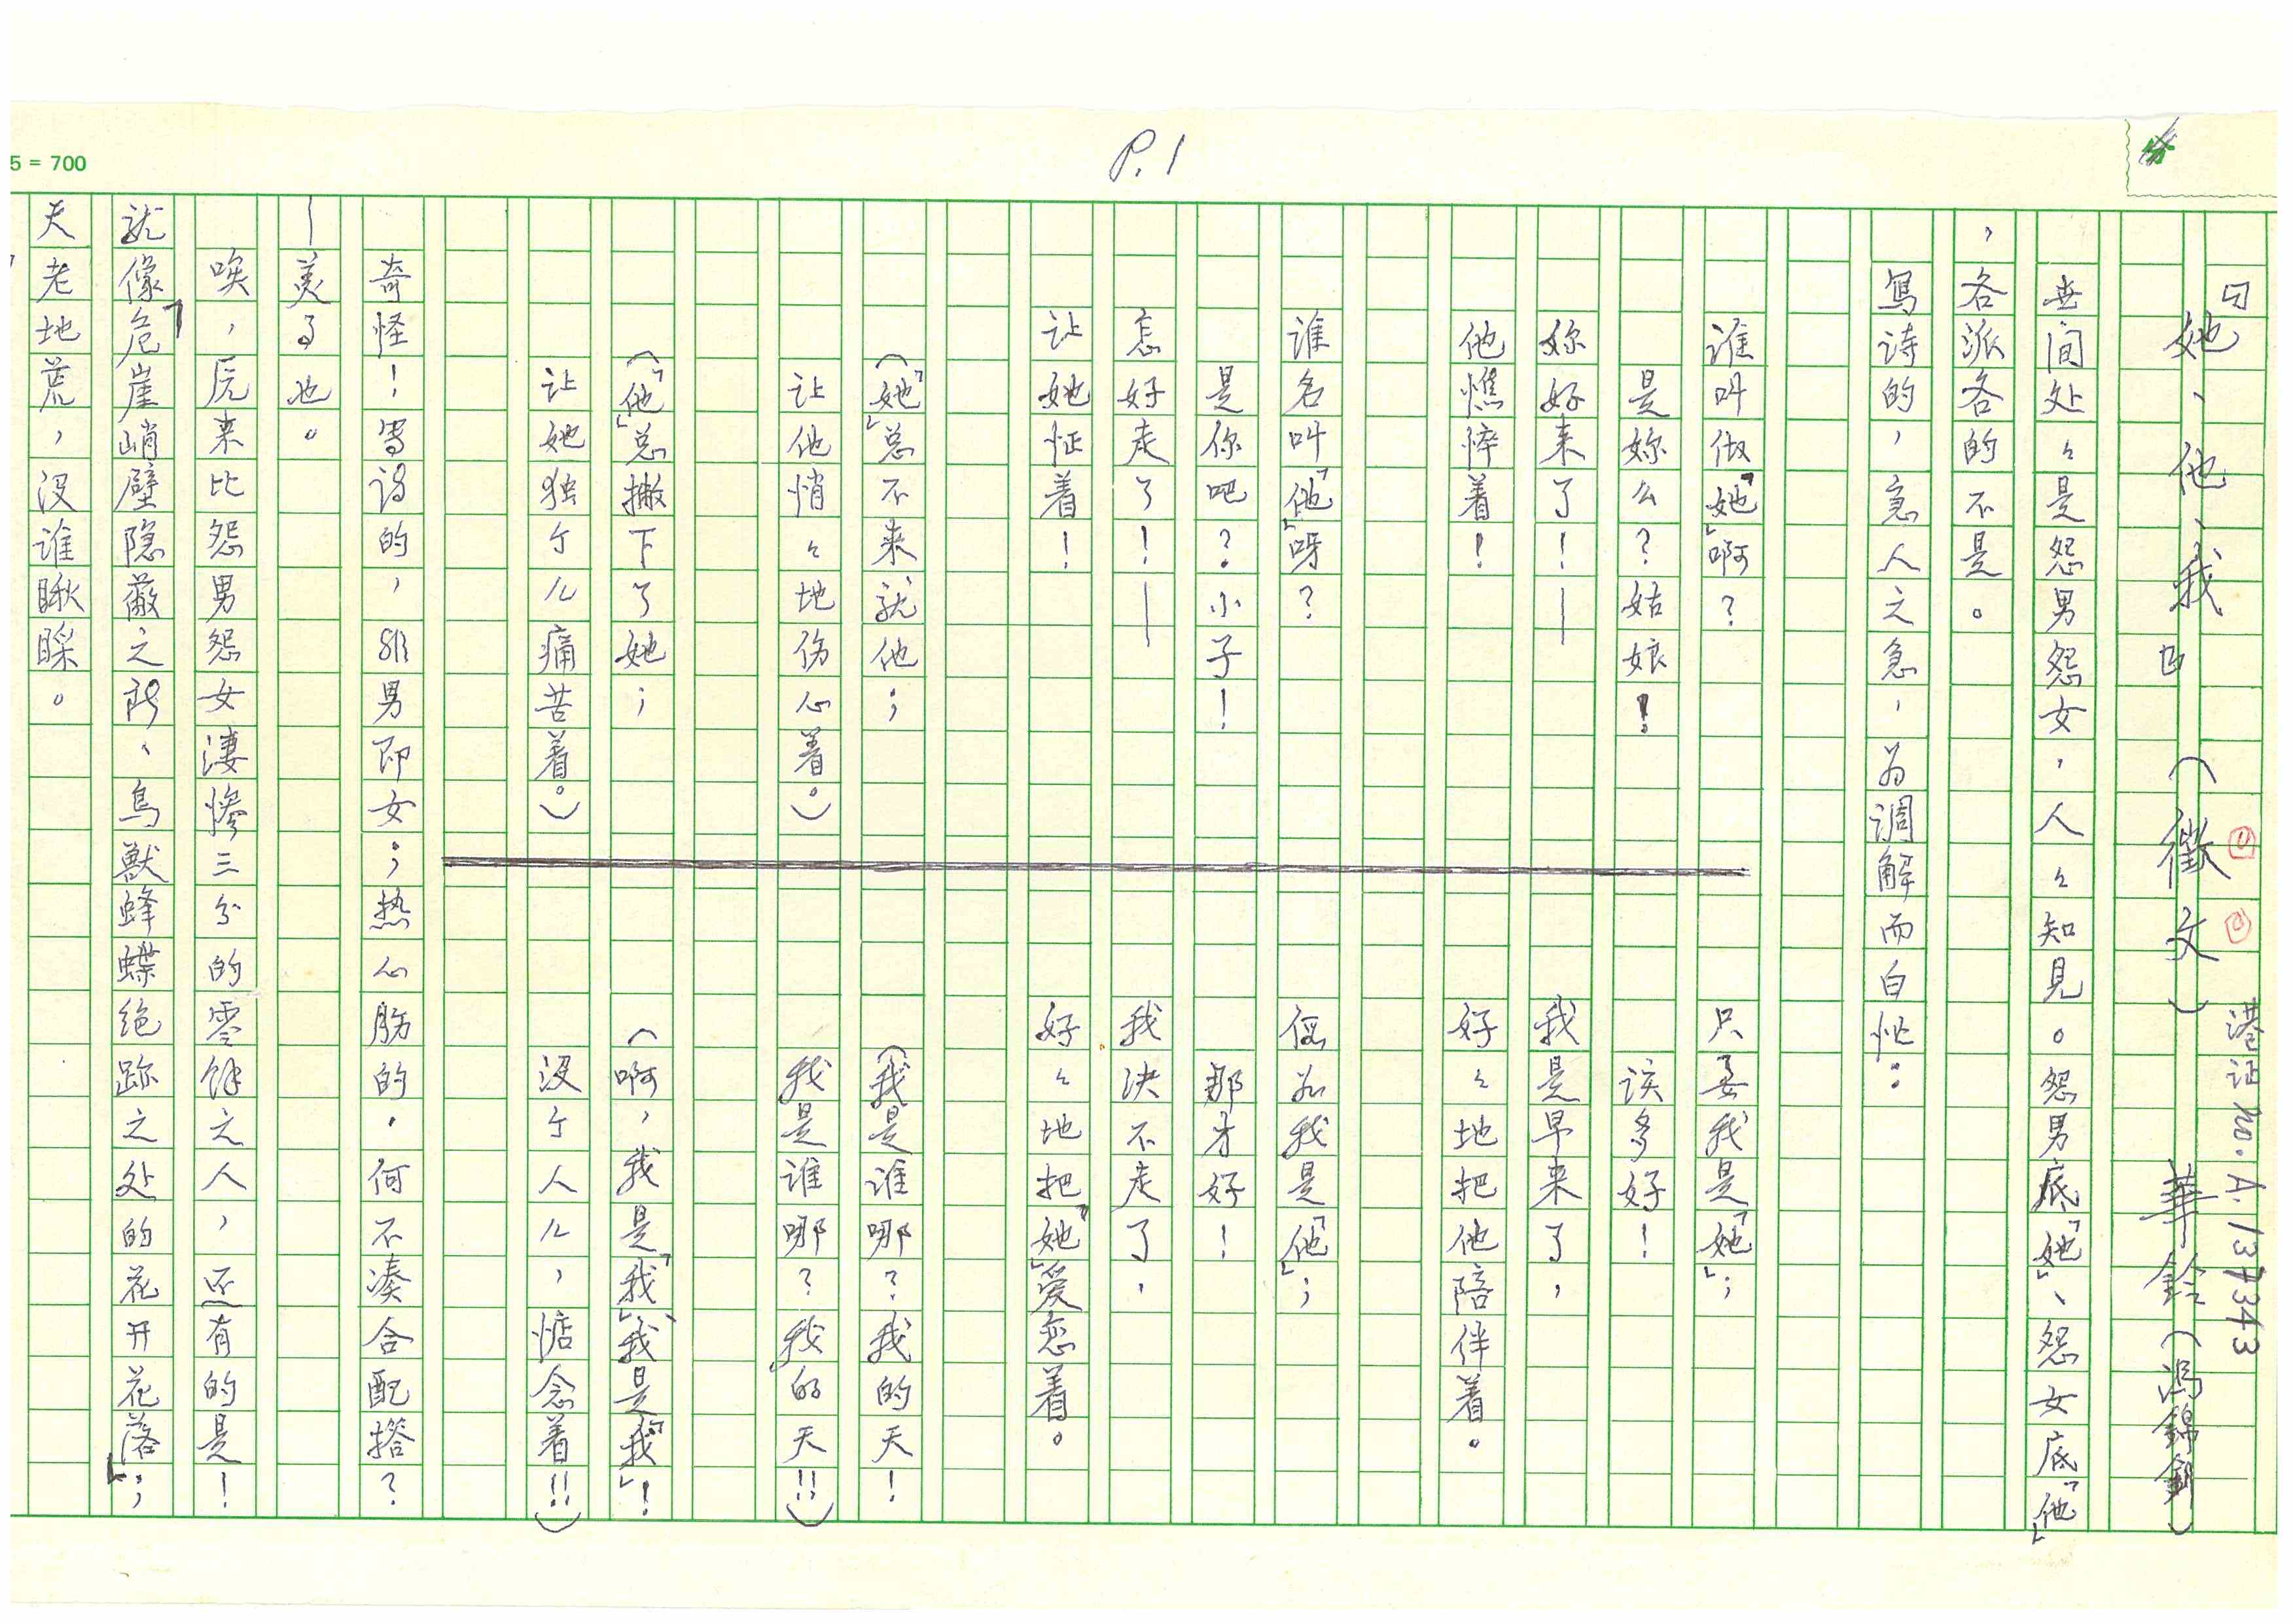 P.1
5 = 700
港证 No. A. 137343
她、他、我 （徵文） 華鈴（馮錦釗）
世间处々是怨男怨女，人々知見。怨男底「她」、怨女底「他」
，各派各的不是。
寫诗的，急人之急，为调解而白忙：
谁叫做「她」啊？ 只要我是「她」；
是妳么？姑娘！ 该多好！
妳好来了！— 我是早来了，
他憔悴着！ 好々地把他陪伴着。
谁名叫「他」呀？ 假如我是「他」；
是你吧？小子！ 那才好！
怎好走了！— 我决不走了，
让她怔着！ 好々地把「她」爱恋着。
（「她」总不来就他； （我是谁哪？我的天！
让他悄々地伤心着。） 我是谁哪？我的天!!）
（「他」总撇下了她； （啊，我是「我」、我是「我」！
让她独个儿痛苦着。） 没个人儿，惦念着!!）
奇怪！寫诗的，非男即女；热心肠的。何不凑合配搭？
—美了也。
唉，原来比怨男怨女淒惨三分的零馀之人，还有的是！
就像「危崖峭壁隐蔽之所、鸟獸蜂蝶绝跡之处的花开花落」；
天老地荒，没谁瞅睬。